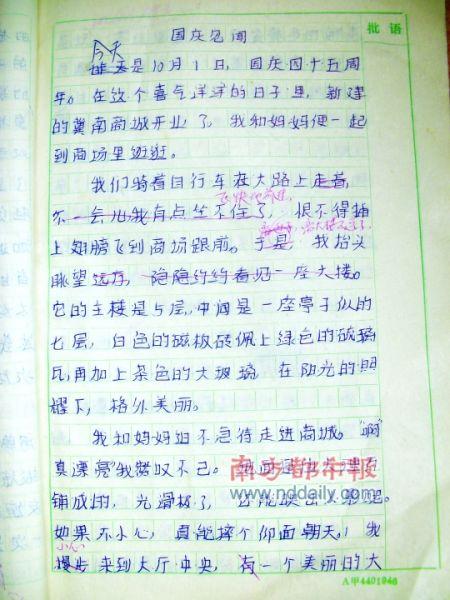 批语
国庆见闻
今天
昨天是10月1日，国庆四十五周
年。在这个喜气洋洋的日子里，新建
的冀南商城开业了，我和妈妈便一起
到商场里逛逛。
我们骑着自行车在大路上走着，
飞快地前进，
不一会儿我有点坐不住了，恨不得插
上翅膀飞到商场跟前。于是，我抬头
眺望远方，隐隐约约看见一座大楼。
它的主楼是5层，中间是一座亭子似的
七层，白色的磁板砖佩上绿色的琉璃
瓦，再加上茶色的大玻璃，在阳光的照
耀下，格外美丽。
我和妈妈迫不急待走进商城。"啊
真漂亮"我赞叹不已。地面是由大理石
铺成的，光滑极了，
如果不小心，真能摔个仰面朝天。！我
小心
慢步来到大厅中央，有一个美丽的大
南方都市报
www.nddaily.com
A甲4401946